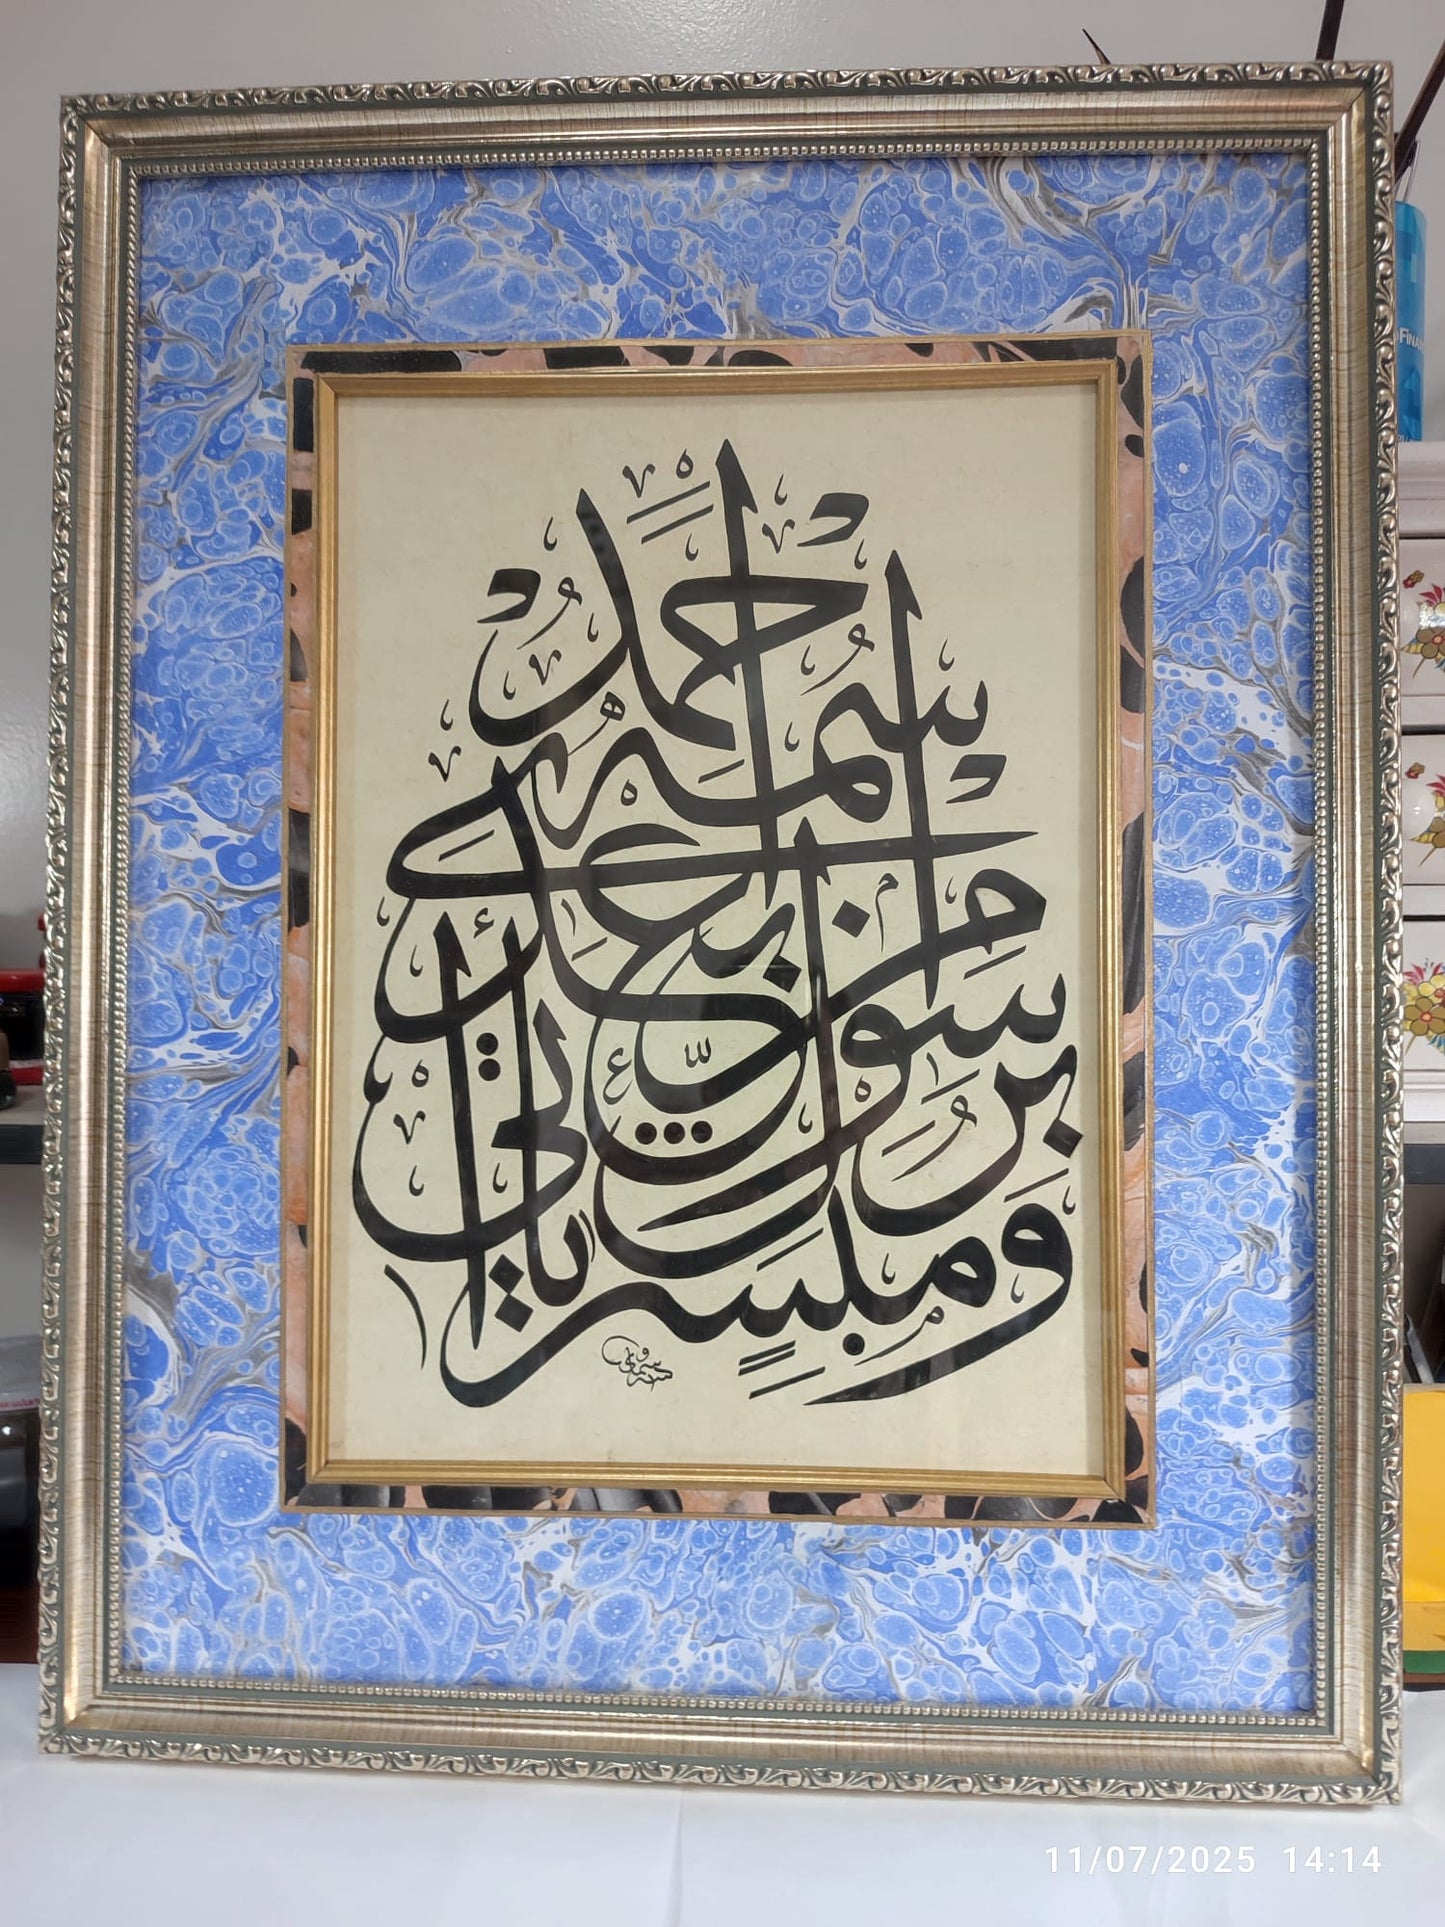 ومبشرا برسول يأتي من بعدي اسمه أحمد
11/07/2025 14:14